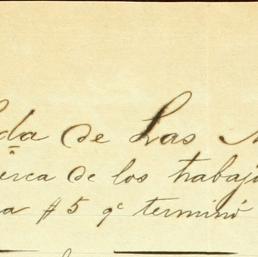 da de Las
erca de los trabajo
a #5 qe terminó